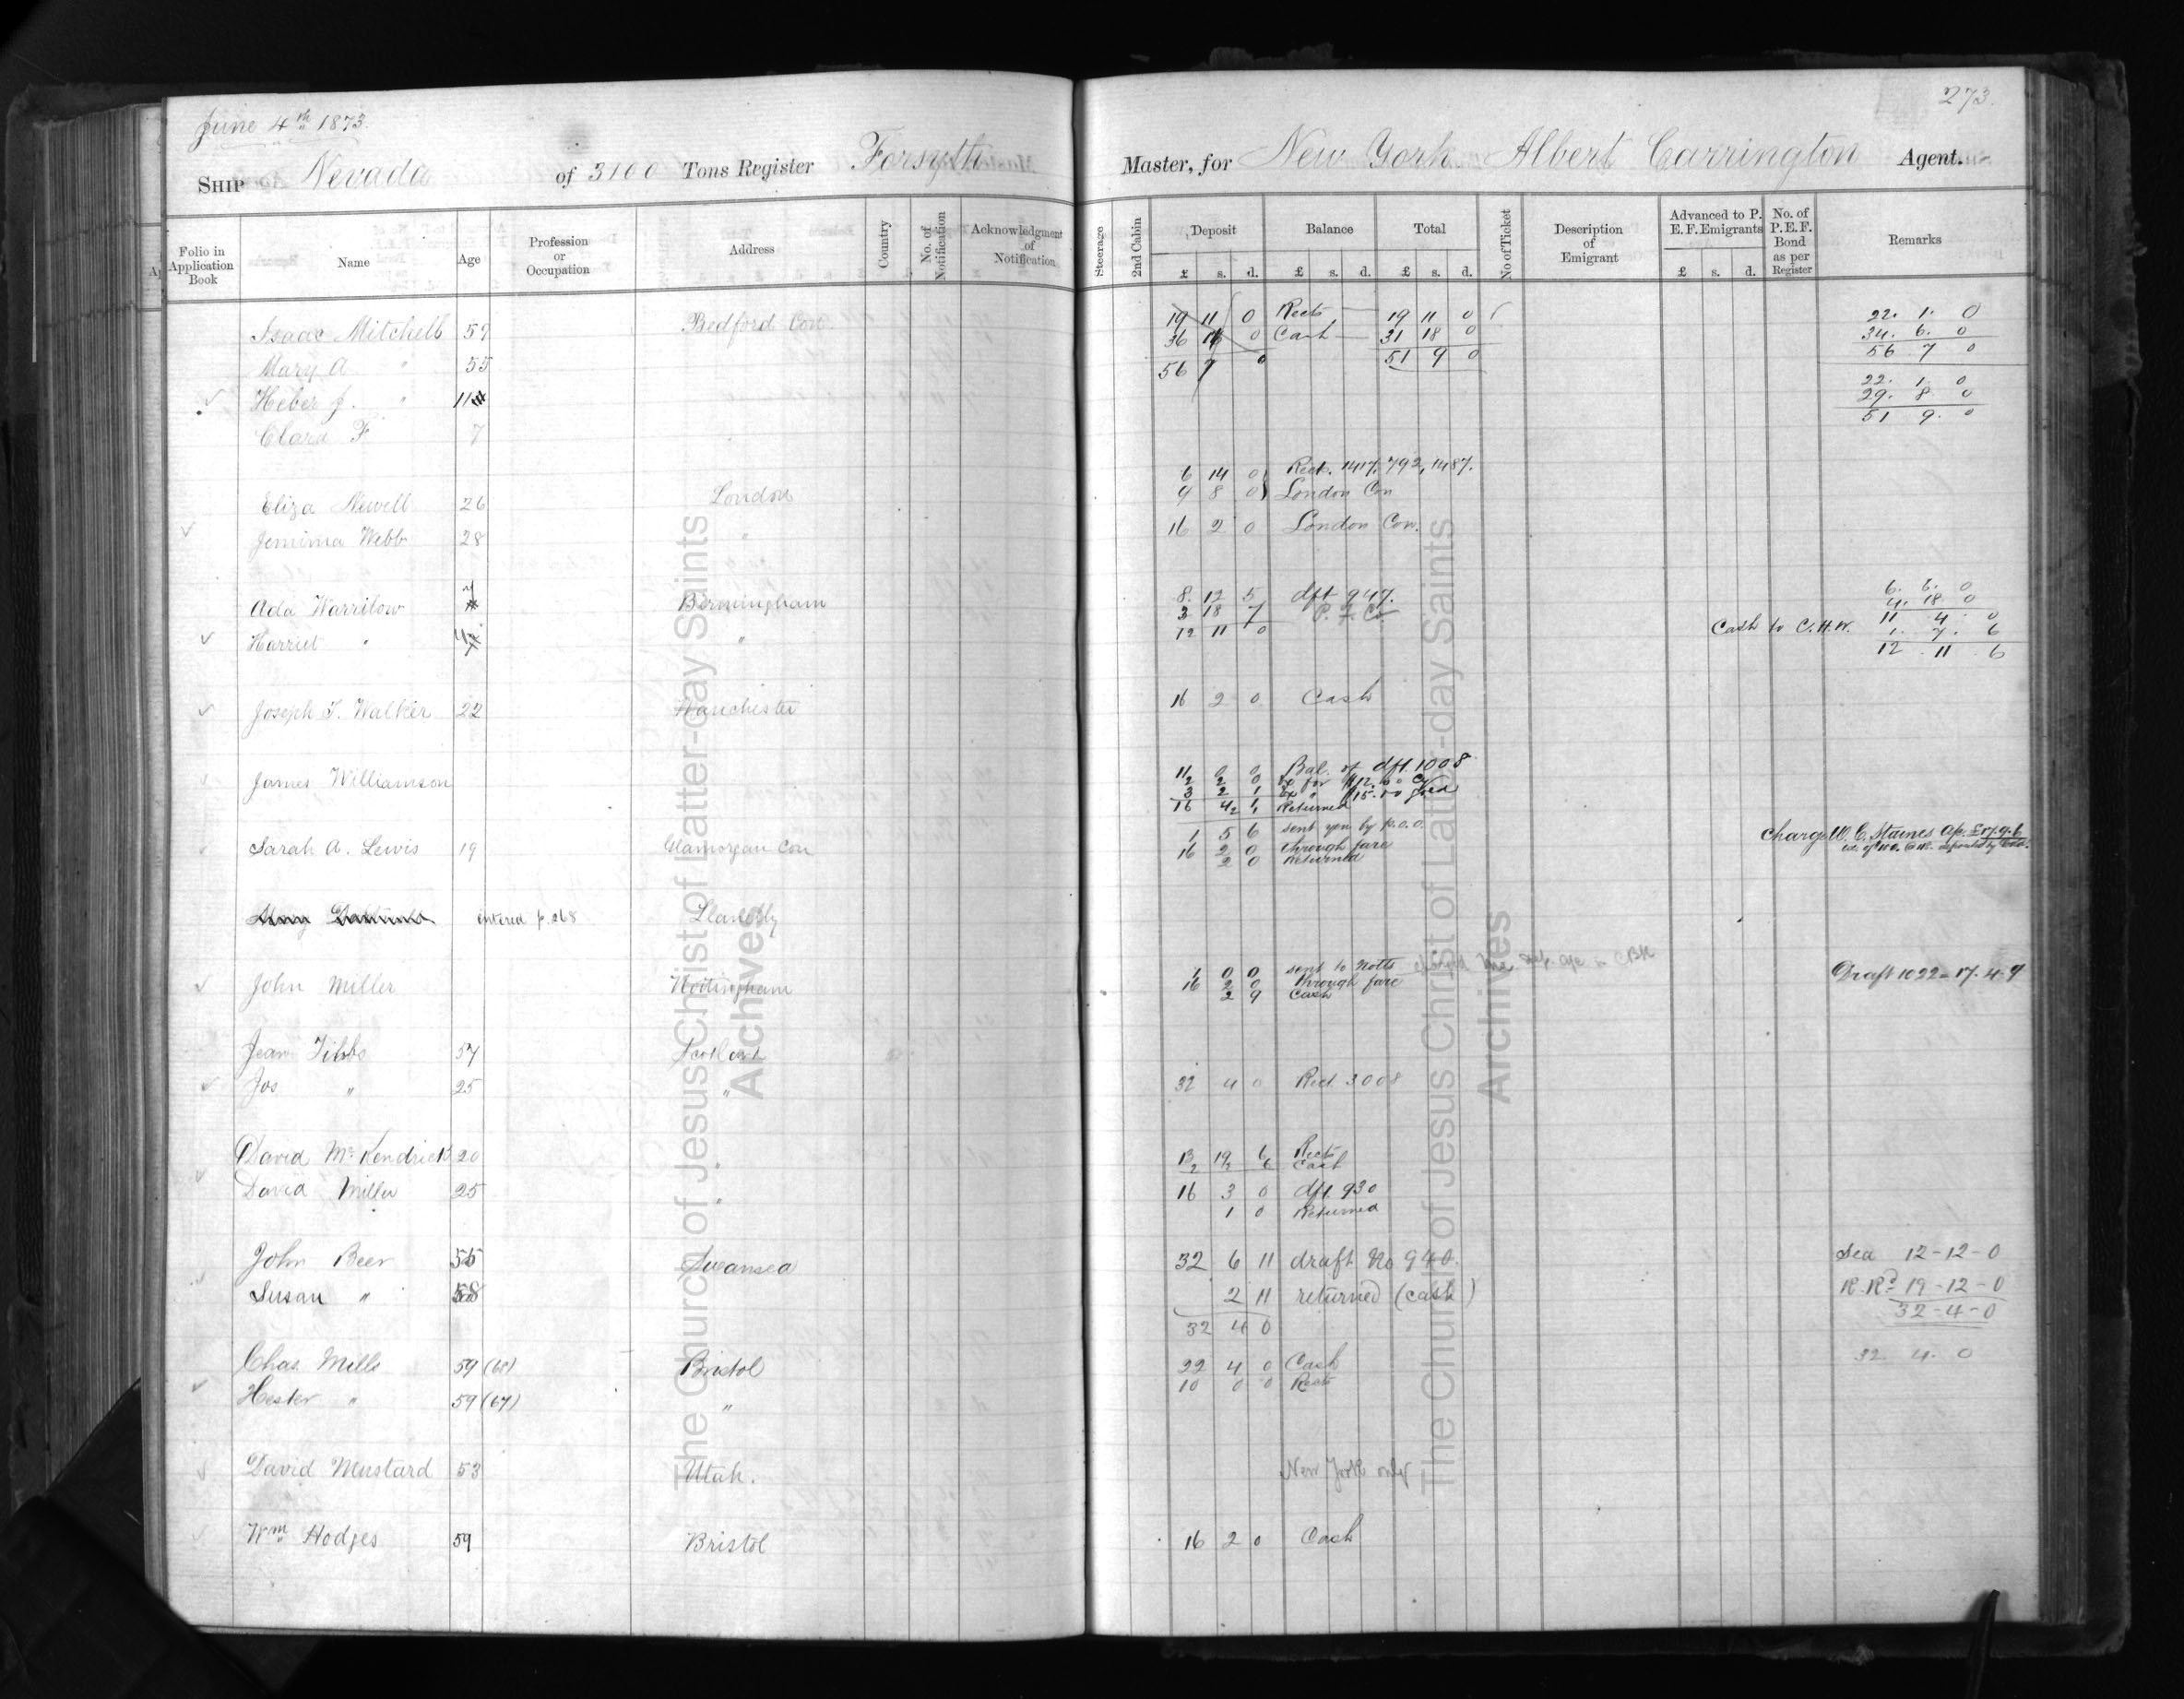 June 4th 1873.
273.
SHIP Nevada of 3100 Tons Register Forsyth Master, for New York Albert Carrington Agent.
Folio in Application Book Name Age Profession or Occupation Address Country No. of Notification Acknowledgment of Notification Steerage 2nd Cabin Deposit Balance Total No of Ticket Description of Emigrant Advanced to P. E. F. Emigrants No. of P. E. F. Bond as per Register Remarks
£ s. d. £ s. d. £ s. d. £ s. d.
Isaac Mitchell 57 Bedford Con. 19 11 0 Rects — 19 11 0 22. 1. 0
36 16 0 Cash — 31 18 0 34. 6. 0
Mary A " 55 56 7 0 51 9 0 56 7 0
Heber J. " 11 22. 1. 0
29. 8. 0
Clara F 7 51 9. 0
6 14 0 Rects. 1417. 792, 1487.
Eliza Newell 26 London 9 8 0 London Con
Jemima Webb 28 " 16 2 0 London Con.
Ada Warrilow 7 Birmingham 8. 12 5 dft 947. 6. 6. 0
3 18 7 P. F. Co 4. 18 0
Harriet " " 12 11 0 Cash to C. H. W. 11 4 0
1. 7. 6
12 . 11 . 6
Joseph T. Walker 22 Manchester 16 2 0 Cash
James Williamson 11 0 0 Bal. of dft. 1008
2 2 0
3 2 1
16 4 1 Returned
1 5 6 sent you by p.o.o.
Sarah A. Lewis 19 Glamorgan Con 16 2 0 through fare Charge W. C. Staines Ap. £17.9.6
2 0 Returned
entered p. 268 Llanelly
1 0 0 sent to Notts
John Miller Nottingham 16 2 0 through fare Draft 1022 = 17. 4. 9
2 9 Cash
Jean Tibbs 57 Scotland
Jos " 25 " 32 4 0 Rect. 3008
David McKendrick 20 13 19 6 Rects
2 2 6 Cash
David Miller 25 " 16 3 0 dft. 930
1 0 Returned
John Beer 55 Swansea 32 6 11 draft No 940. Sea 12-12-0
Susan " 58 2 11 returned (cash) R.Rd 19-12-0
32 4 0 32-4-0
Chas. Mills 59 (68) Bristol 22 4 0 Cash 32 4. 0
10 0 0 Rects
Hester " 59 (67) "
David Mustard 53 Utah. New York only
Wm Hodges 59 Bristol 16 2 0 Cash
The Church of Jesus Christ of Latter-day Saints
Archives
The Church of Jesus Christ of Latter-day Saints
Archives